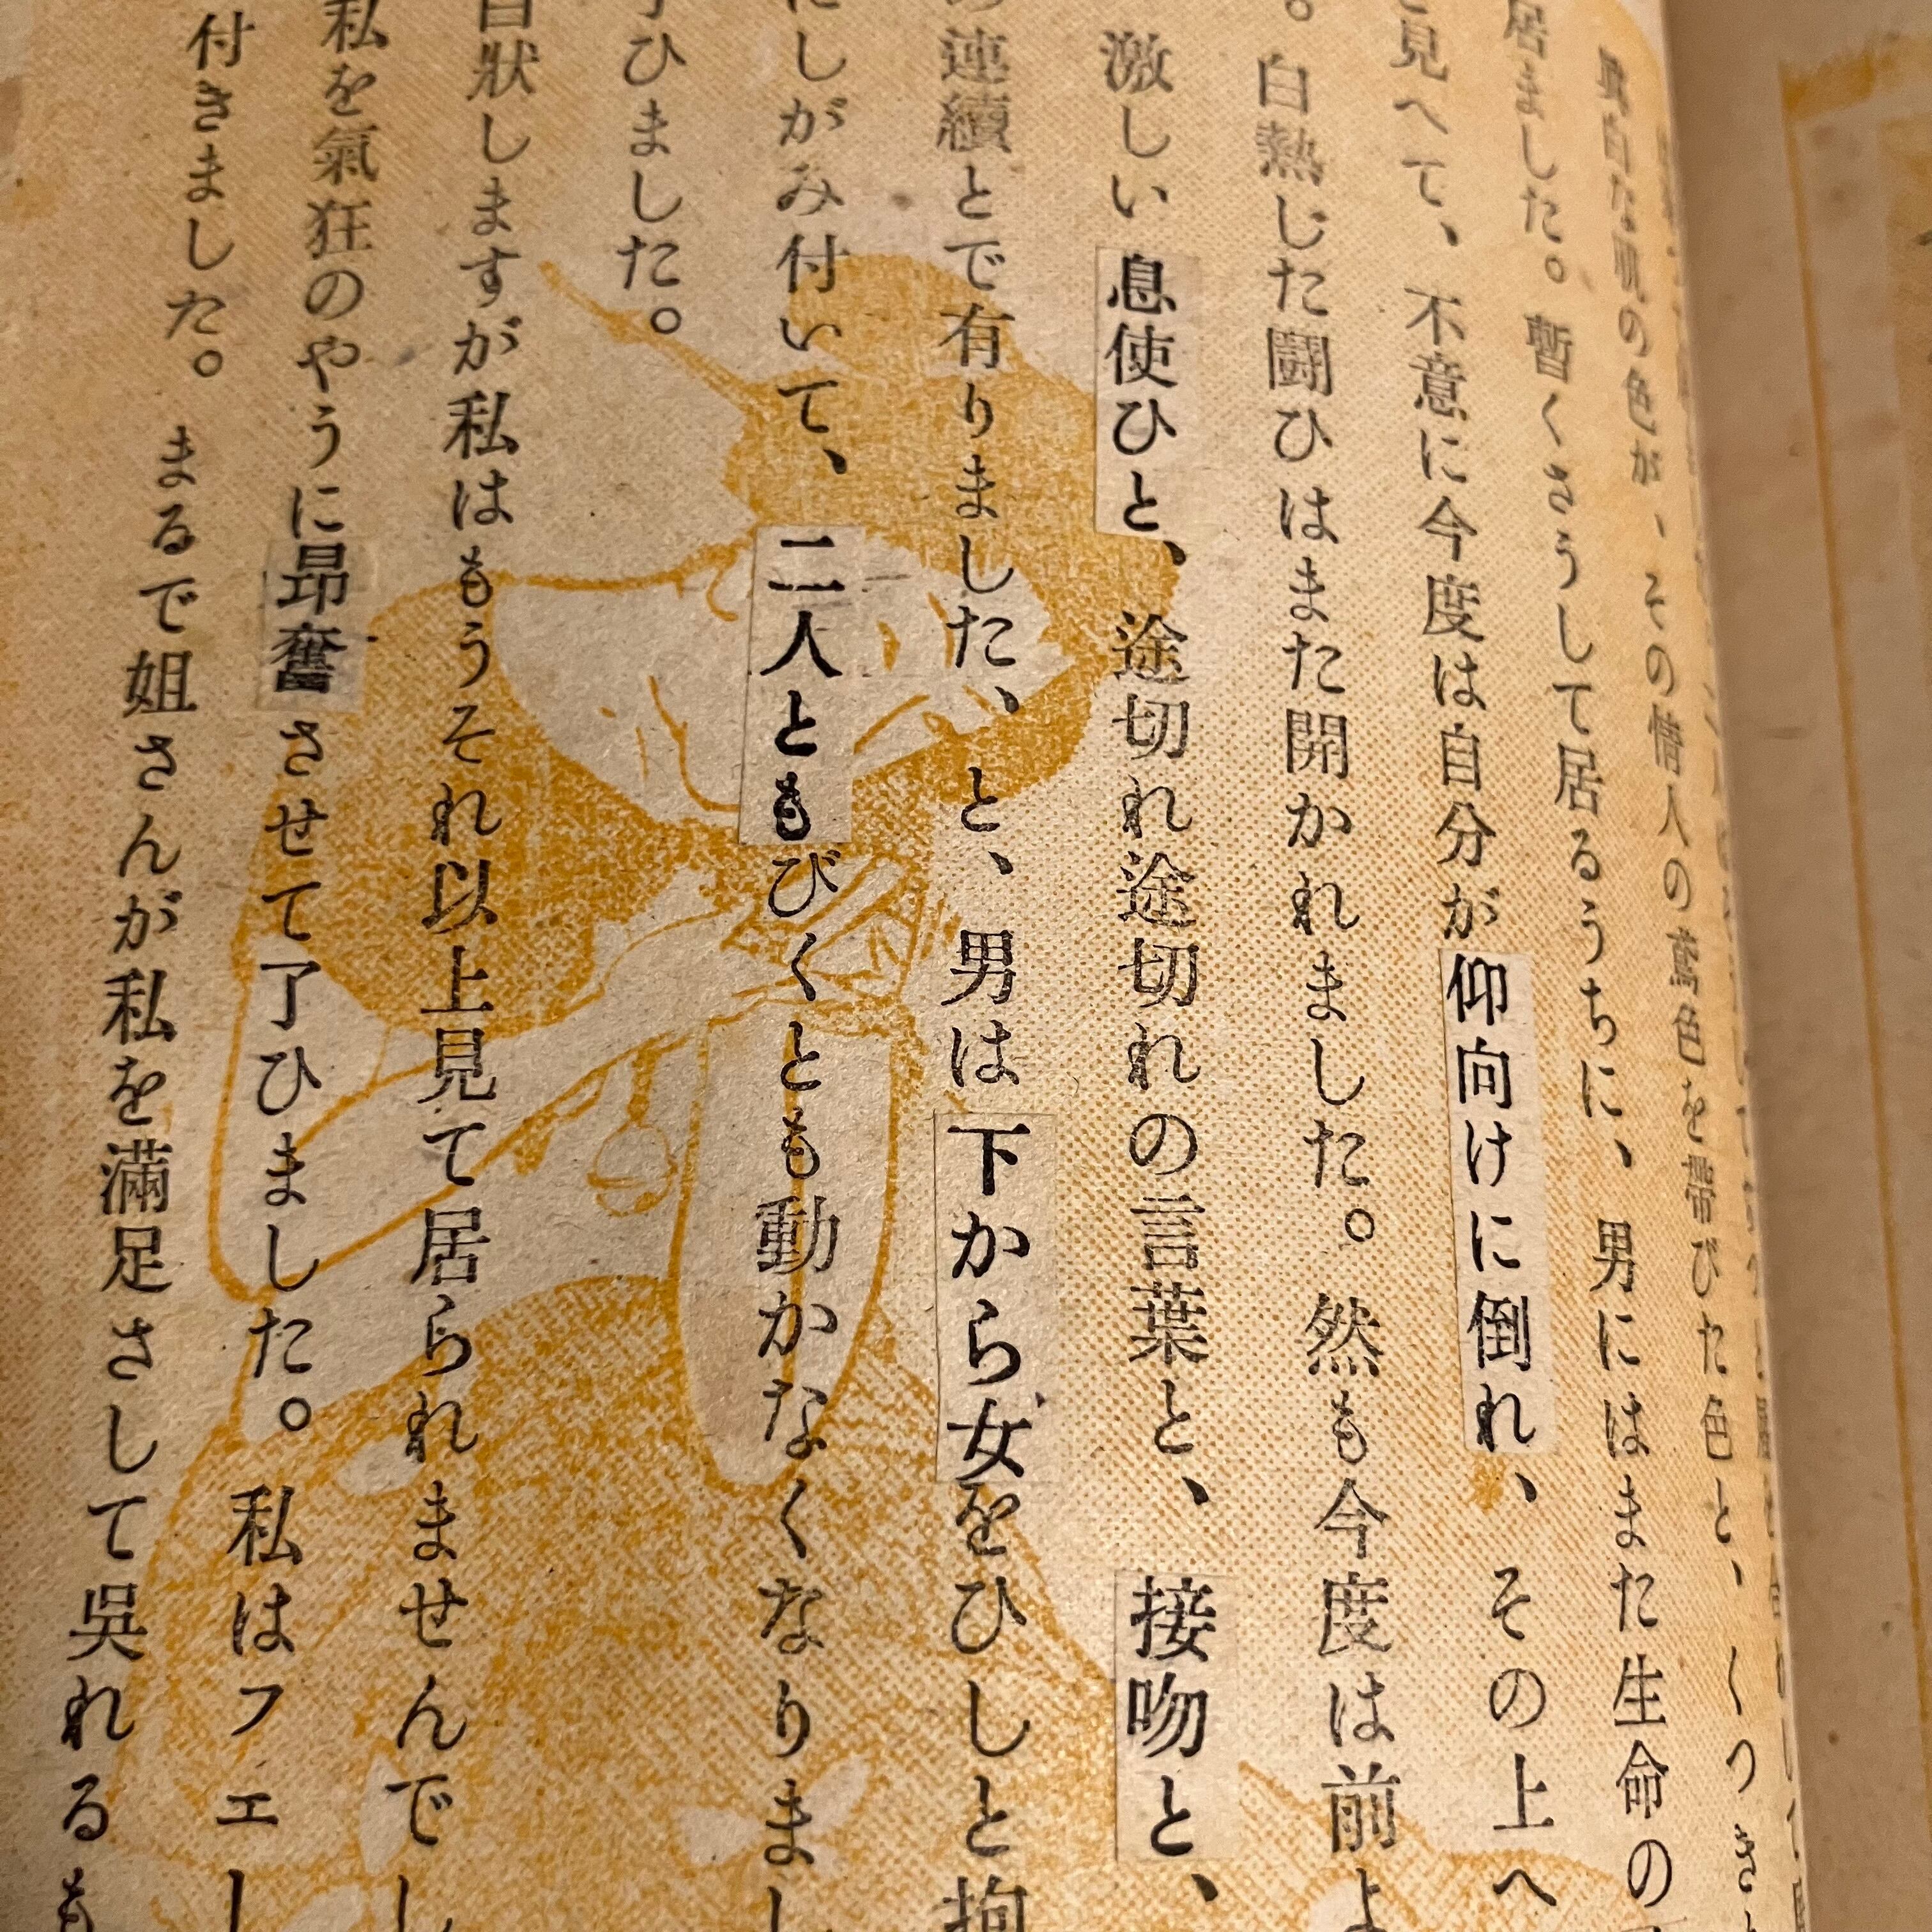 眞白な肌の色が、その情人の鳶色を帶びた色と、しつき
居ました。暫くさうして居るうちに、男にはまた生命の
見へて、不意に今度は自分が仰向けに倒れ、その上へ
。白熱じた闘ひはまた開かれました。然も今度は前よ
激しい息使ひと、途切れ途切れの言葉と、接吻と、
連續とで有りました、と、男は下から女をひしと抱
にしがみ付いて、二人ともびくとも動かなくなりまし
ひました。
白狀しますが私はもうそれ以上見て居られませんでし
私を氣狂のやうに昂奮させて了ひました。私はフエー
付きました。まるで姐さんが私を滿足さして吳れるも